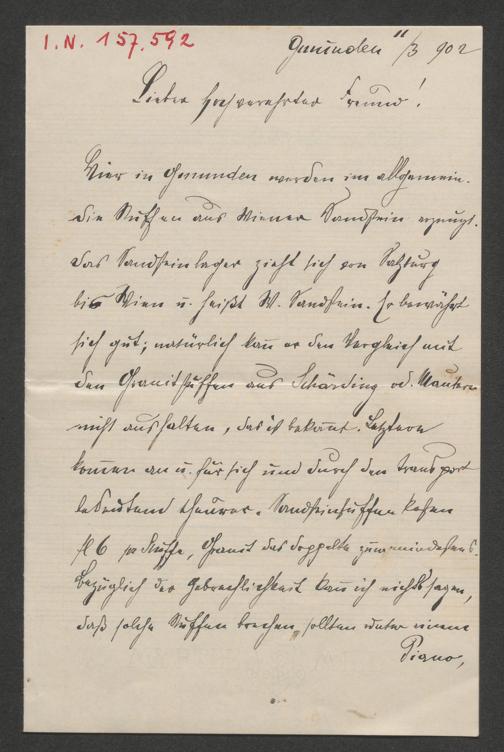 I.N. 157.592
Gmunden 11/3 902
Lieber hochverehrter Freund!
Hier in Gmunden werden im allgemein.
die Stuffen aus Wiener Sandstein erzeugt.
Das Sandsteinlager zieht sich von Salzburg
bis Wien u. heißt W. Sandstein. Er bewährt
sich gut; natürlich kan̅ er den Vergleich mit
den Granitstuffen aus Schärding od. Mautern
nicht aushalten, das ist bekan̅t. Letztere
kom̅en an u. für sich und durch den Transport
bedeutend theurer. Sandsteinstuffen kosten
fl 6 pr Stuffe, Granit das doppelte zum mindestens.
Bezüglich der Gebrechlichkeit kan̅ ich nichts sagen,
daß solche Stuffen brechen, sollten unter einem
Piano,